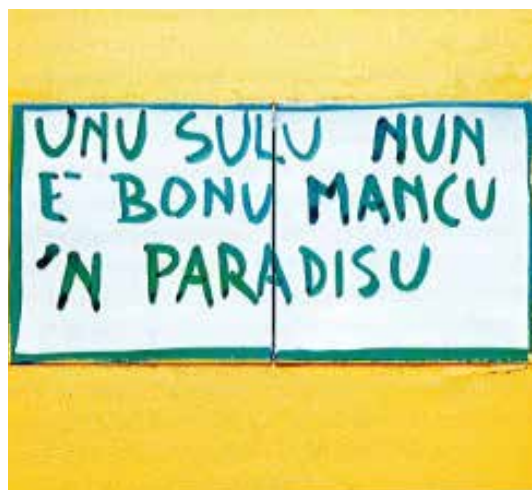 UNU SULU NUN
E' BONU MANCU
'N PARADISU